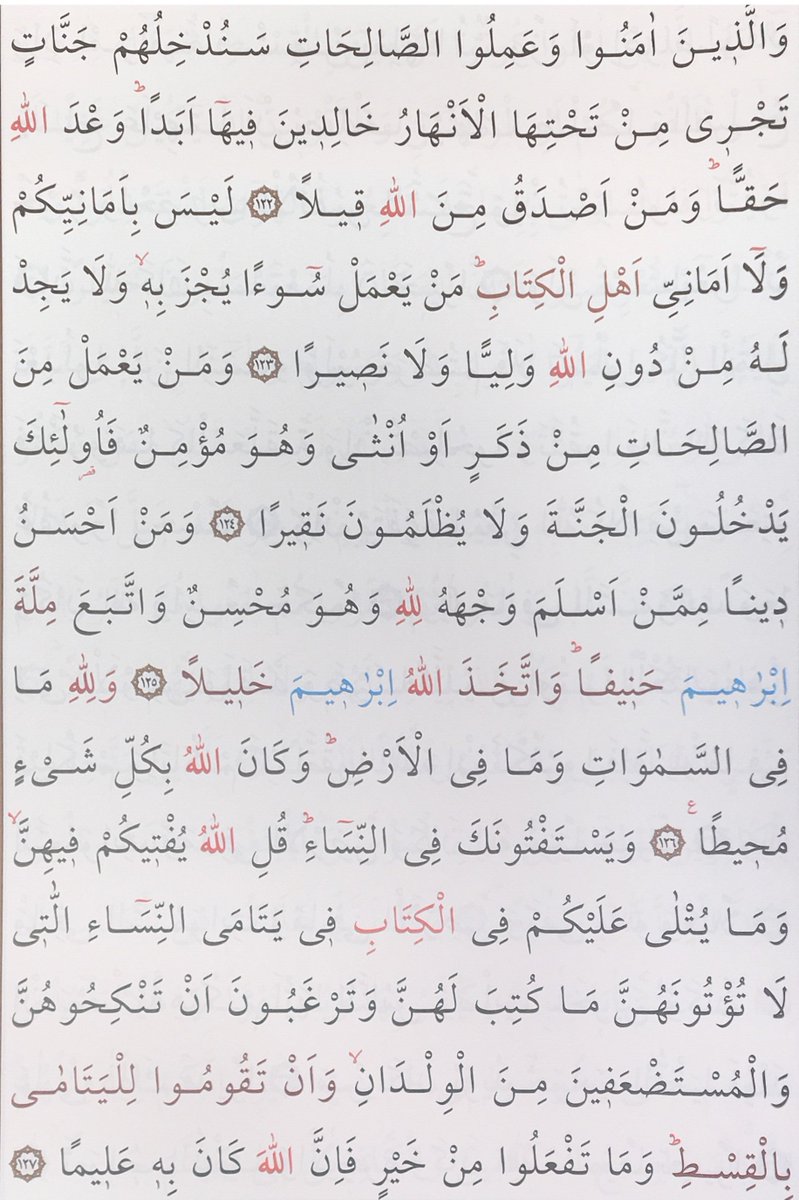 وَالَّذ۪ينَ اٰمَنُوا وَعَمِلُوا الصَّالِحَاتِ سَنُدْخِلُهُمْ جَنَّاتٍ
تَجْر۪ى مِنْ تَحْتِهَا الْاَنْهَارُ خَالِد۪ينَ ف۪يهَٓا اَبَدًاۜ وَعْدَ اللّٰهِ
حَقًّاۜ وَمَنْ اَصْدَقُ مِنَ اللّٰهِ ق۪يلًا ﴿١٢٢﴾ لَيْسَ بِاَمَانِيِّكُمْ
وَلَٓا اَمَانِيِّ اَهْلِ الْكِتَابِۜ مَنْ يَعْمَلْ سُٓوءًا يُجْزَ بِه۪ۙ وَلَا يَجِدْ
لَهُ مِنْ دُونِ اللّٰهِ وَلِيًّا وَلَا نَص۪يرًا ﴿١٢٣﴾ وَمَنْ يَعْمَلْ مِنَ
الصَّالِحَاتِ مِنْ ذَكَرٍ اَوْ اُنْثٰى وَهُوَ مُؤْمِنٌ فَاُو۬لٰٓئِكَ
يَدْخُلُونَ الْجَنَّةَ وَلَا يُظْلَمُونَ نَق۪يرًا ﴿١٢٤﴾ وَمَنْ اَحْسَنُ
د۪ينًا مِمَّنْ اَسْلَمَ وَجْهَهُ لِلّٰهِ وَهُوَ مُحْسِنٌ وَاتَّبَعَ مِلَّةَ
اِبْرٰه۪يمَ حَن۪يفًاۜ وَاتَّخَذَ اللّٰهُ اِبْرٰه۪يمَ خَل۪يلًا ﴿١٢٥﴾ وَلِلّٰهِ مَا
فِى السَّمٰوَاتِ وَمَا فِى الْاَرْضِۜ وَكَانَ اللّٰهُ بِكُلِّ شَىْءٍ
مُح۪يطًا ﴿١٢٦﴾ ع وَيَسْتَفْتُونَكَ فِى النِّسَٓاءِۜ قُلِ اللّٰهُ يُفْت۪يكُمْ ف۪يهِنَّۙ
وَمَا يُتْلٰى عَلَيْكُمْ فِى الْكِتَابِ ف۪ى يَتَامَى النِّسَٓاءِ الّٰت۪ى
لَا تُؤْتُونَهُنَّ مَا كُتِبَ لَهُنَّ وَتَرْغَبُونَ اَنْ تَنْكِحُوهُنَّ
وَالْمُسْتَضْعَف۪ينَ مِنَ الْوِلْدَانِۙ وَاَنْ تَقُومُوا لِلْيَتَامٰى
بِالْقِسْطِۜ وَمَا تَفْعَلُوا مِنْ خَيْرٍ فَاِنَّ اللّٰهَ كَانَ بِه۪ عَل۪يمًا ﴿١٢٧﴾